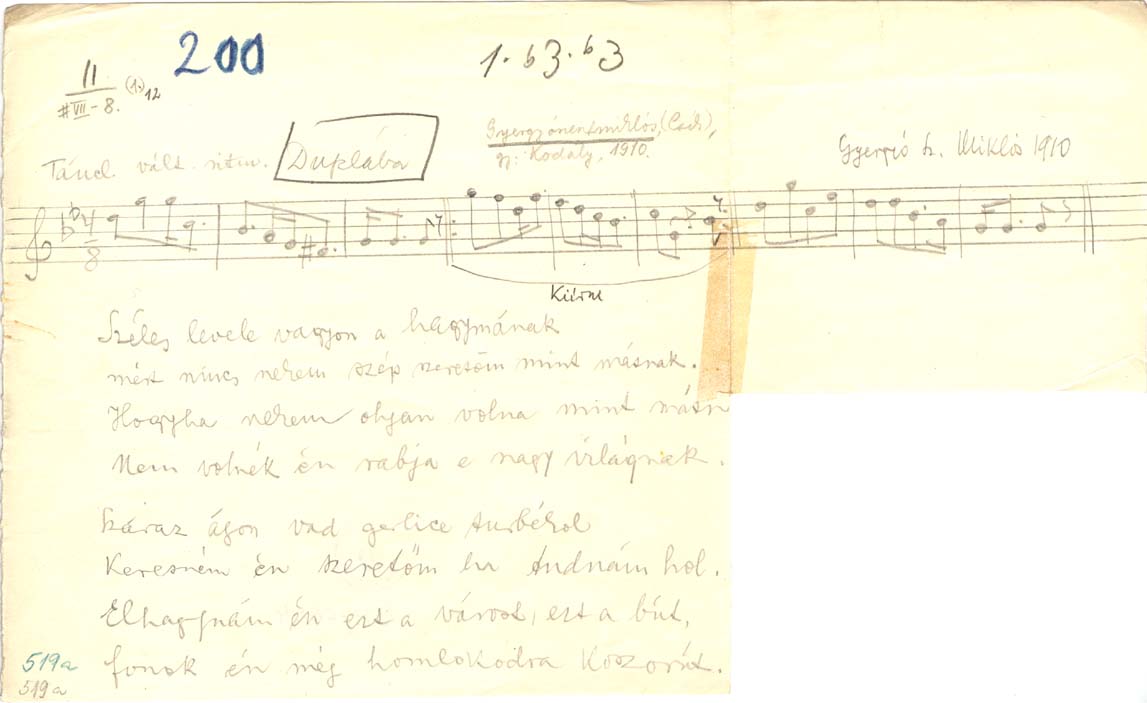 200
1. b3. b3
11
#VII - 8. (1.) 12
Táncl. vált. ritm. Duplába
Gyergyószentmiklós, (Csík),
gy: Kodály, 1910.
Gyergió sz. Miklós 1910
4
8
Kiírni
Széles levele vagyon a hagymának
mért nincs nekem szép szeretőm mint másnak.
Hogyha nekem olyan volna mint másn
Nem volnék én rabja e nagy világnak.
Száraz ágon vad gerlice turbékol
Keresném én szeretőm ha tudnám hol.
Elhagynám én ezt a várost, ezt a bút,
fonok én még homlokodra koszorút.
519a
519a